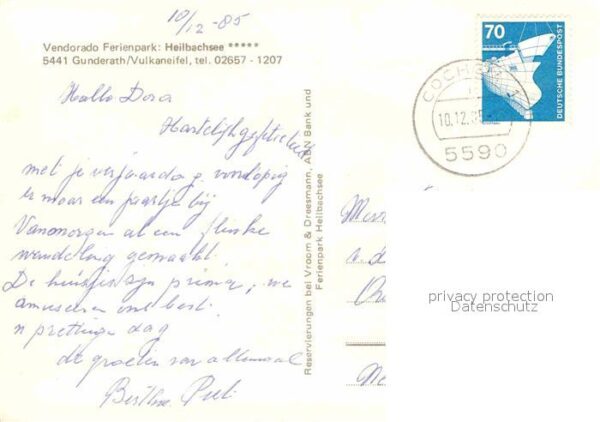 10/12-85
Vendorado Ferienpark: Heilbachsee *****
5441 Gunderath/Vulkaneifel, tel. 02657 - 1207
Hallo Dora
Hartelijk gefeliciteerd
met je verjaardag voorlopig
er maar een paartje bij
Vanmorgen al een flinke
wandeling gemaakt.
De huisjes zijn prima, we
amuseren ons best.
n prettige dag
de groeten van allemaal
Piet
Reservierungen bei Vroom & Dreesmann, ABN Bank und
Ferienpark Heilbachsee
70
DEUTSCHE BUNDESPOST
COCHEM
10.12.85
5590
privacy protection
Datenschutz